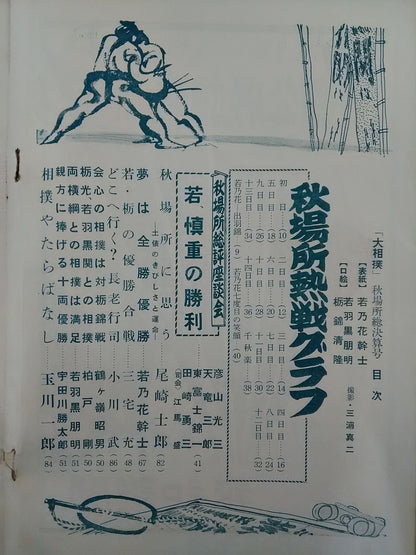 「大相撲」秋場所総決算号　目次
【表紙】　若乃花幹士
若羽黒朋明
【口絵】　栃錦清隆
撮影・三浦寛二
秋場所熱戦グラフ
初日(10)　二日目(12)　三日目(14)　四日目(16)
五日目(18)　六日目(20)　七日目(22)　八日目(24)
九日目(26)　十日目(28)　十一日目(30)　十二日目(32)
十三日目(34)　十四日目(36)　千秋楽(38)
若乃花・出羽錦(9)　若乃花七度目の笑顔(40)
《秋場所総評座談会》
若、慎重の勝利
彦山光三
天竜三郎
東富士錦一
田崎勇三
(司会)江馬盛
(41)
秋場所に思う　尾崎士郎(82)
土俵のきびしさと運命
夢は全勝優勝　若乃花幹士(67)
若・栃の優勝合戦　三宅充(48)
どこへ行く〱長老行司　小川武(86)
会心の相撲は対栃錦戦　鶴ヶ嶺昭男(50)
栃光、若羽黒関との相撲　柏戸剛(50)
両横綱との相撲は満足　若羽黒朋明(51)
親方に捧げる十両優勝　宇田川勝太郎(51)
相撲やたらばなし　玉川一郎(84)